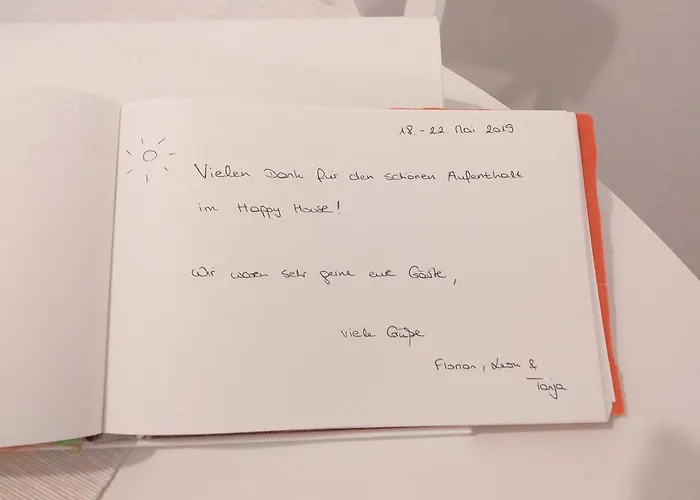 18. - 22. Mai 2019
Vielen Dank für den schönen Aufenthalt
im Happy House!
Wir waren sehr gerne eure Gäste,
viele Grüße
Florian, Leon &
Tanja